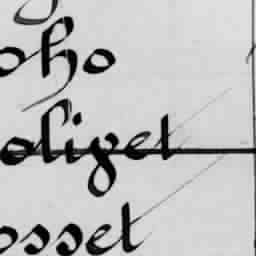 oho
oliget
osset